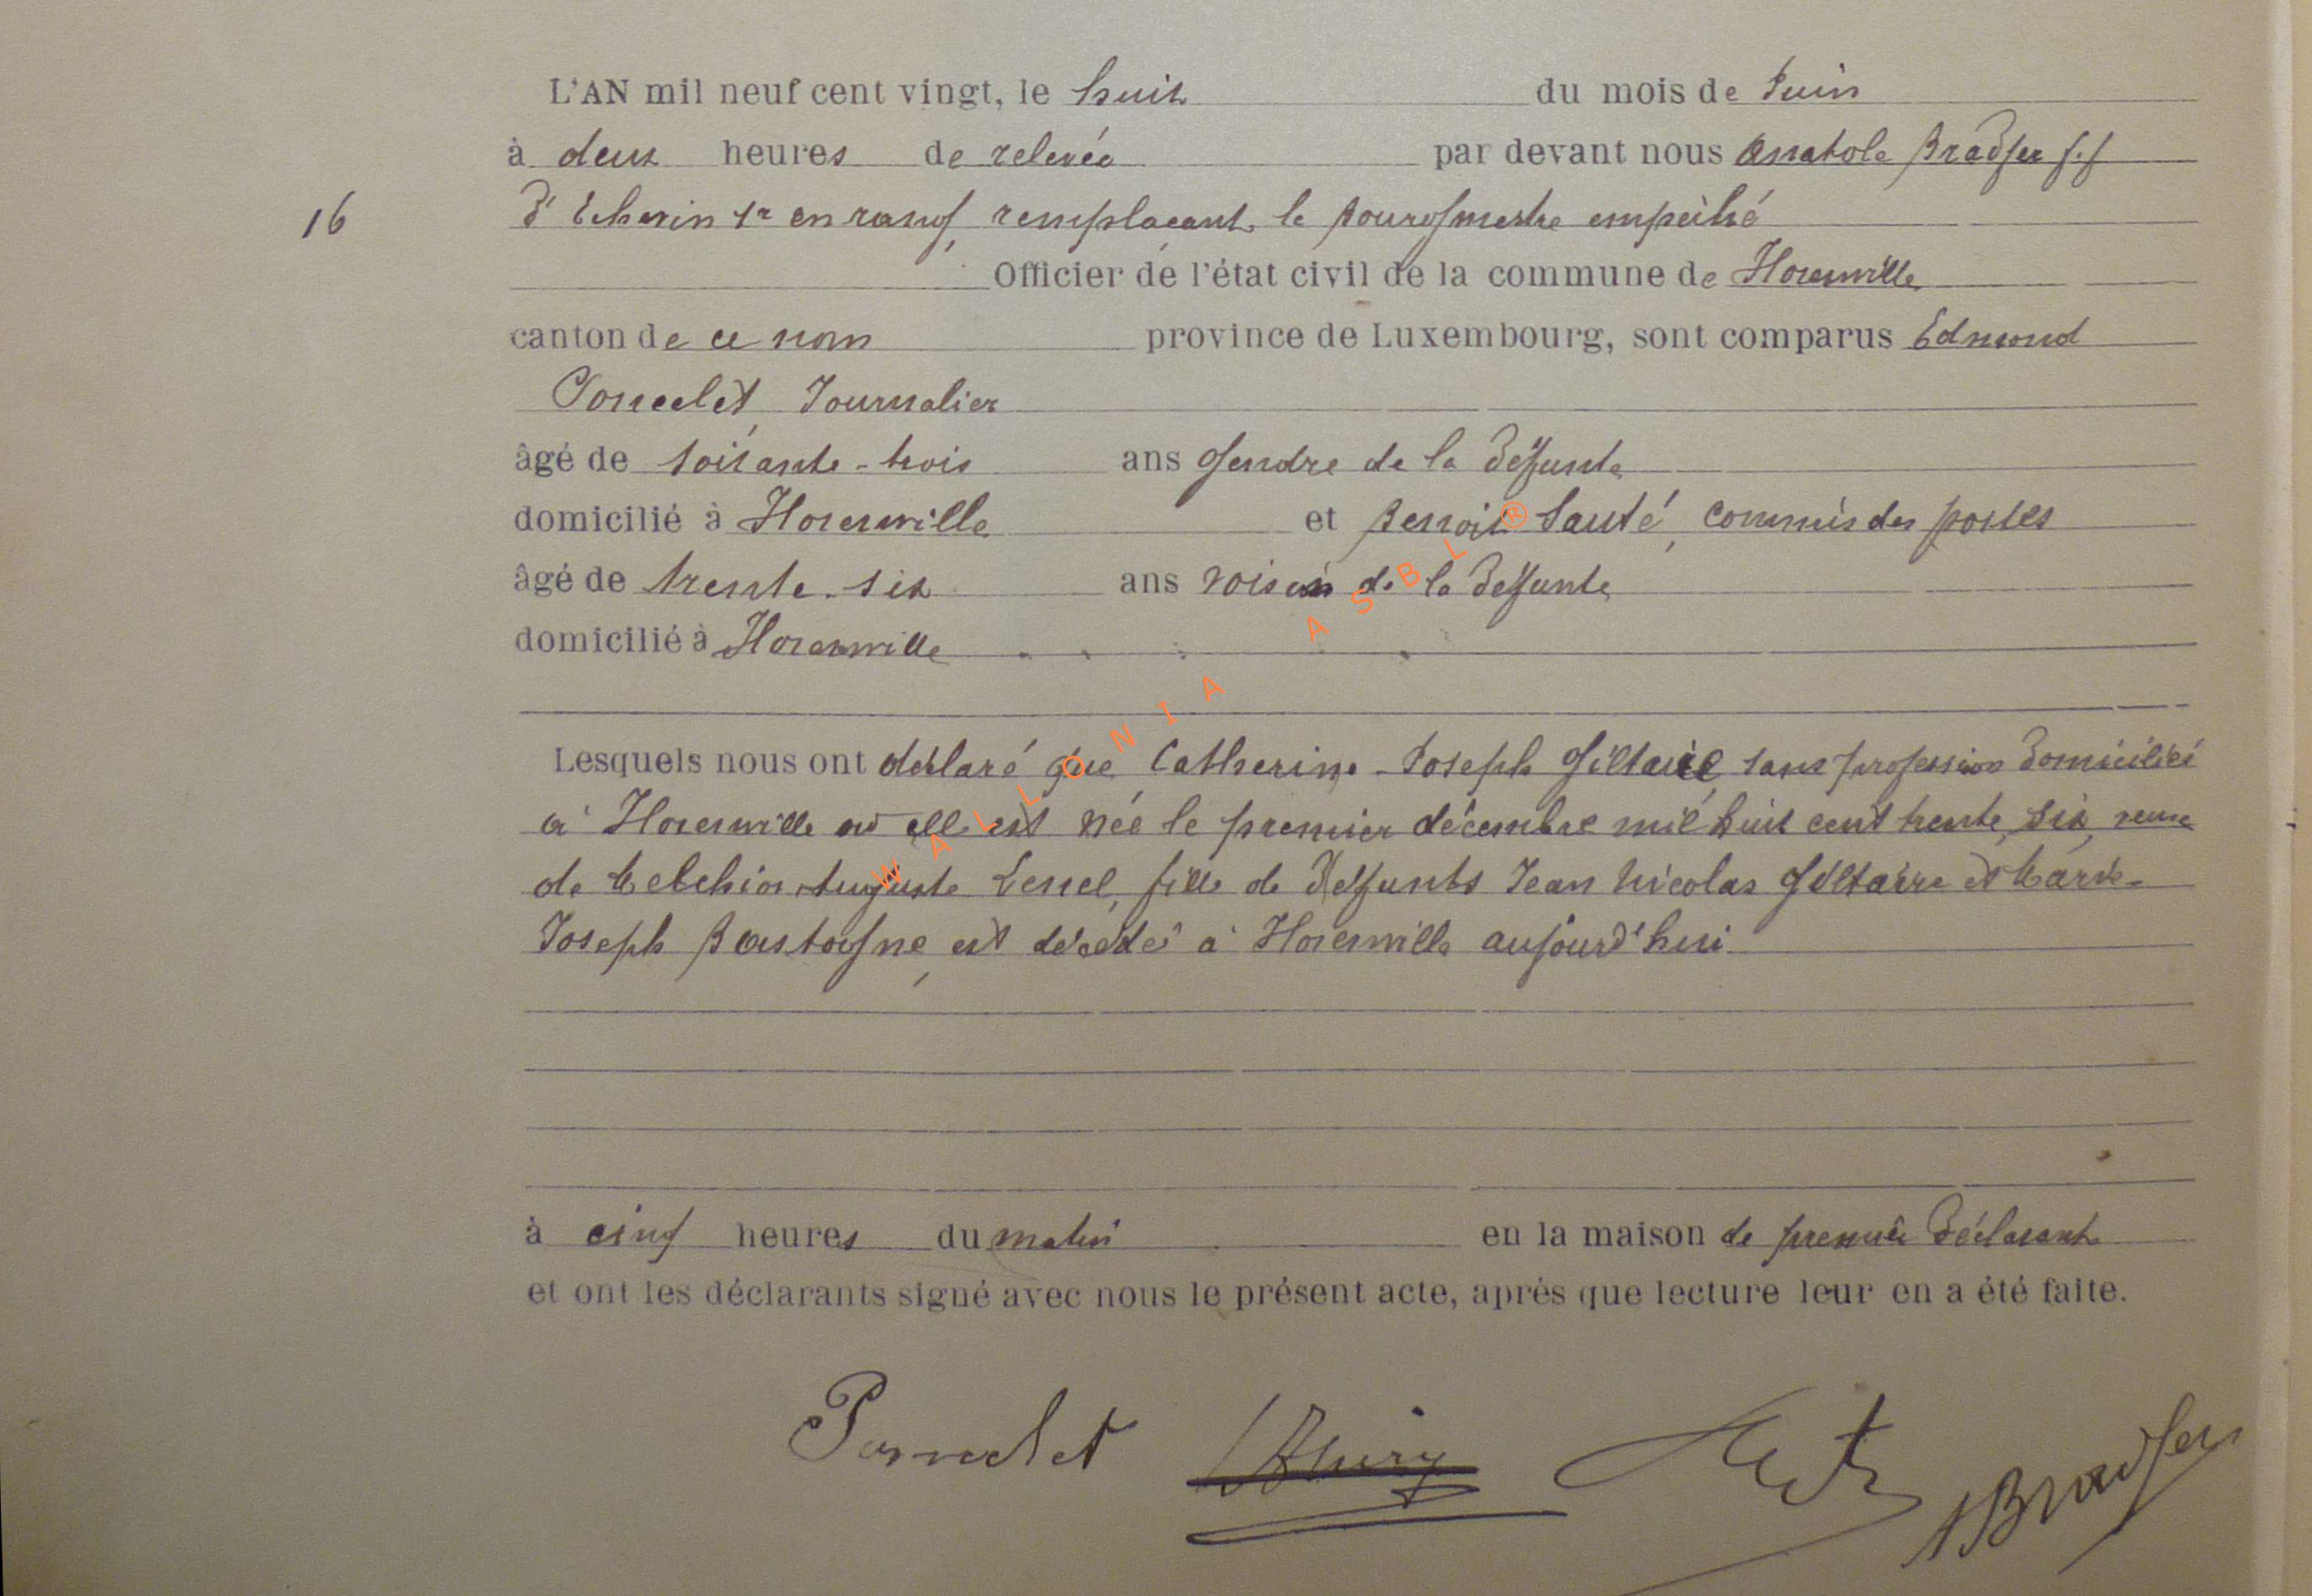 L'AN mil neuf cent vingt, le huit du mois de Juin
à deux heures de relevée par devant nous Anatole Bradfer f.f
16
d'Echevin 1r en rang, remplaçant le Bourgmestre empêché
Officier de l'état civil de la commune de Florenville
canton de ce nom province de Luxembourg, sont comparus Edmond
Poncelet, Journalier
âgé de soixante-trois ans gendre de la défunte
domicilié à Florenville et Benoit Sauté, commis des postes
âgé de trente-six ans voisin de la défunte
domicilié à Florenville
Lesquels nous ont déclaré que Catherine-Joseph Giltaire sans profession domiciliée
à Florenville où elle est née le premier décembre mil huit cent trente six, veuve
de Melchior Auguste Lenel, fille de défunts Jean Nicolas Giltaire et Marie-
Joseph Bastogne, est décédée à Florenville aujourd'hui
à cinq heures du matin en la maison de premier déclarant
et ont les déclarants signé avec nous le présent acte, après que lecture leur en a été faite.
Poncelet ABradfer
WALLONIA ASBL ®